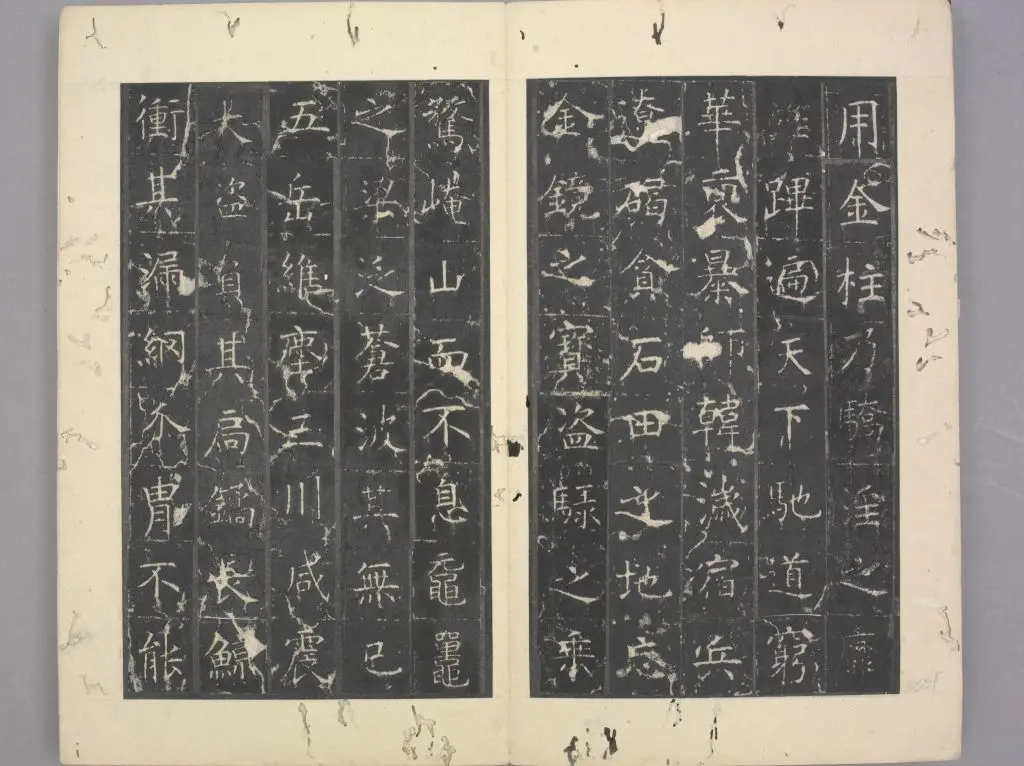 用金柱乃驕淫之
蹕遍天下馳道窮
華裔暴師韓濊宿兵
遼碣貪石田之地忘
金鏡之寶盜騄之乘
驚崦山而不息黿鼉
之梁泛蒼波其無已
五岳維塵三川咸震
大盜負其扃鐍長鯨
衝其漏網介胄不能